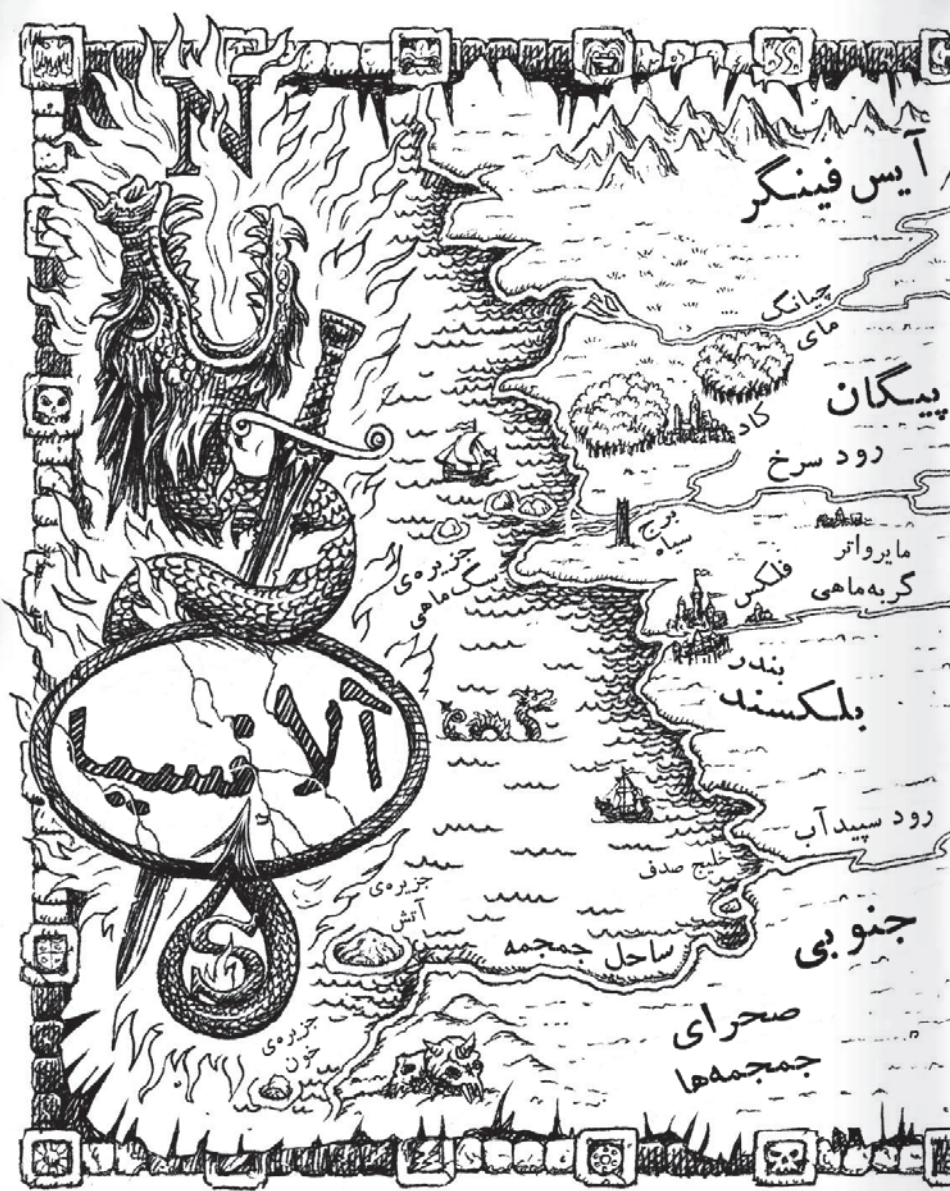 N
آیس فینگر
چیانگ
مای
پیگان
کاد
رود سرخ
برج
سیاه
مایرواتر
گربه‌ماهی
فلکس
جزیره‌ی
سگ‌ماهی
بندر
بلکسند
آلانسیا
رود سپیدآب
خلیج صدف
جزیره‌ی
آتش
جنوبی
ساحل جمجمه
S
صحرای
جمجمه‌ها
جزیره‌ی
خون